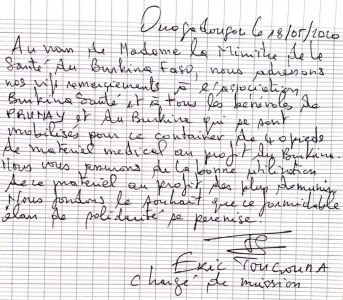 Ouagadougou le 18/05/2020
Au nom de Madame la Ministre de la
Santé du Burkina Faso, nous adressons
nos vifs remerciements à l'association
Burkina Santé et à tous les bénévoles de
PRUNAY et du Burkina qui se sont
mobilisés pour ce container de 40 pieds
de matériel medical au profit du Burkina.
Nous vous assurons de la bonne utilisation
de ce matériel au profit des plus demunis
Nous fondons le souhait que ce formidable
élan de solidarité se perénise.
Eric
Chargé de mission